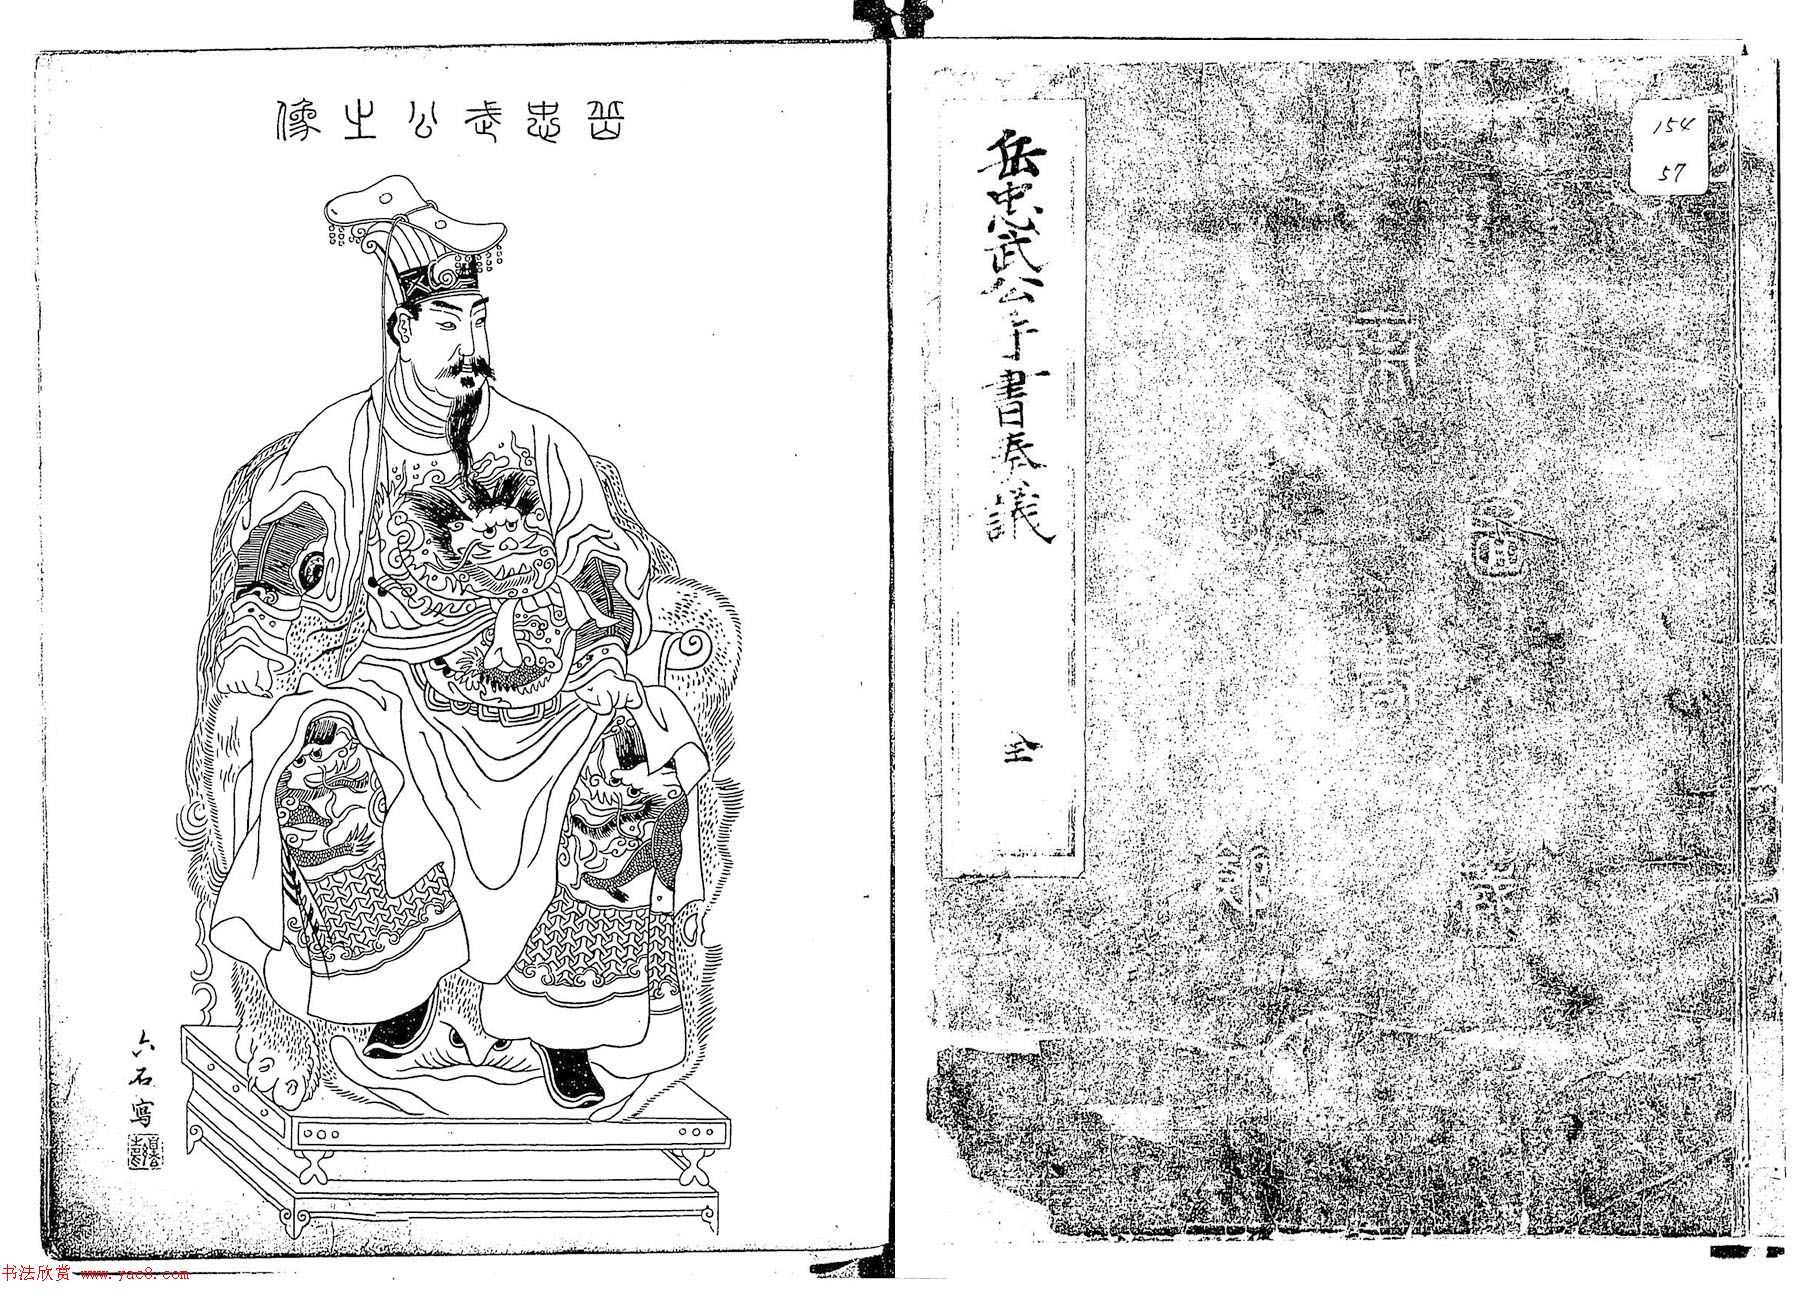 岳忠武公手書奏議
全
154
57
岳忠武公之像
六石寫
书法欣赏 www.yac8.com